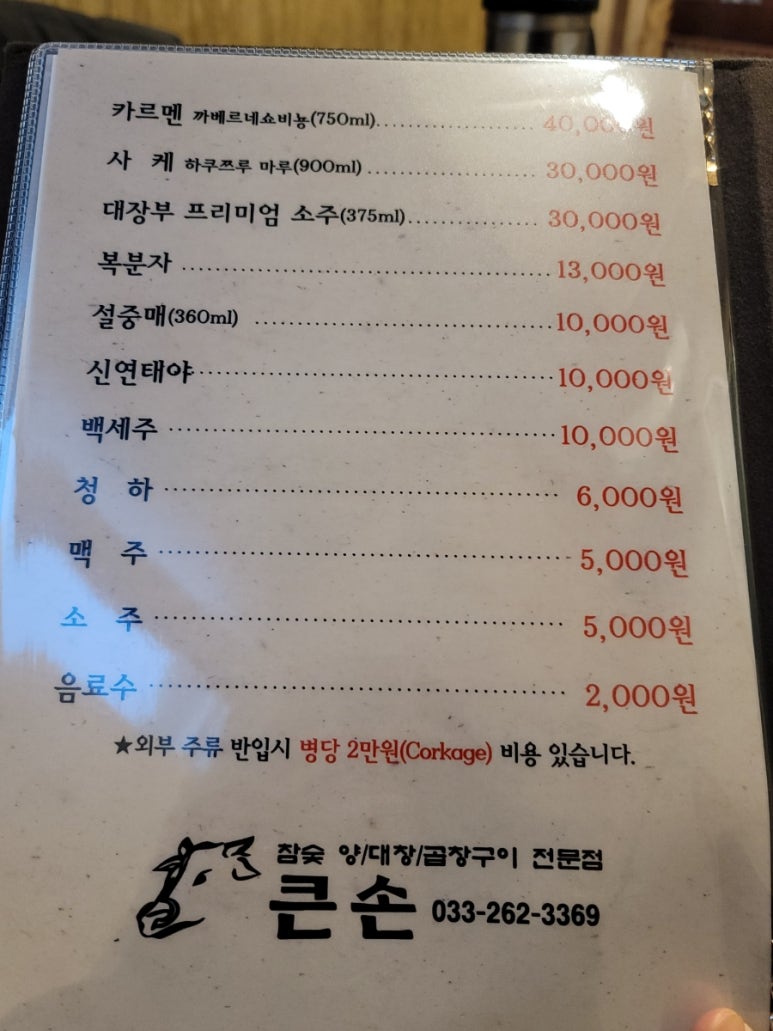 카르멘 까베르네쇼비뇽(750ml)........................ 40,000원
사 케 하쿠쯔루 마루(900ml)........................ 30,000원
대장부 프리미엄 소주(375ml)........................ 30,000원
복분자 ........................ 13,000원
설중매(360ml) ........................ 10,000원
신연태야 ........................ 10,000원
백세주 ........................ 10,000원
청 하 ........................ 6,000원
맥 주 ........................ 5,000원
소 주 ........................ 5,000원
음료수 ........................ 2,000원
★외부 주류 반입시 병당 2만원(Corkage) 비용 있습니다.
참숯 양/대창/곱창구이 전문점
큰손 033-262-3369